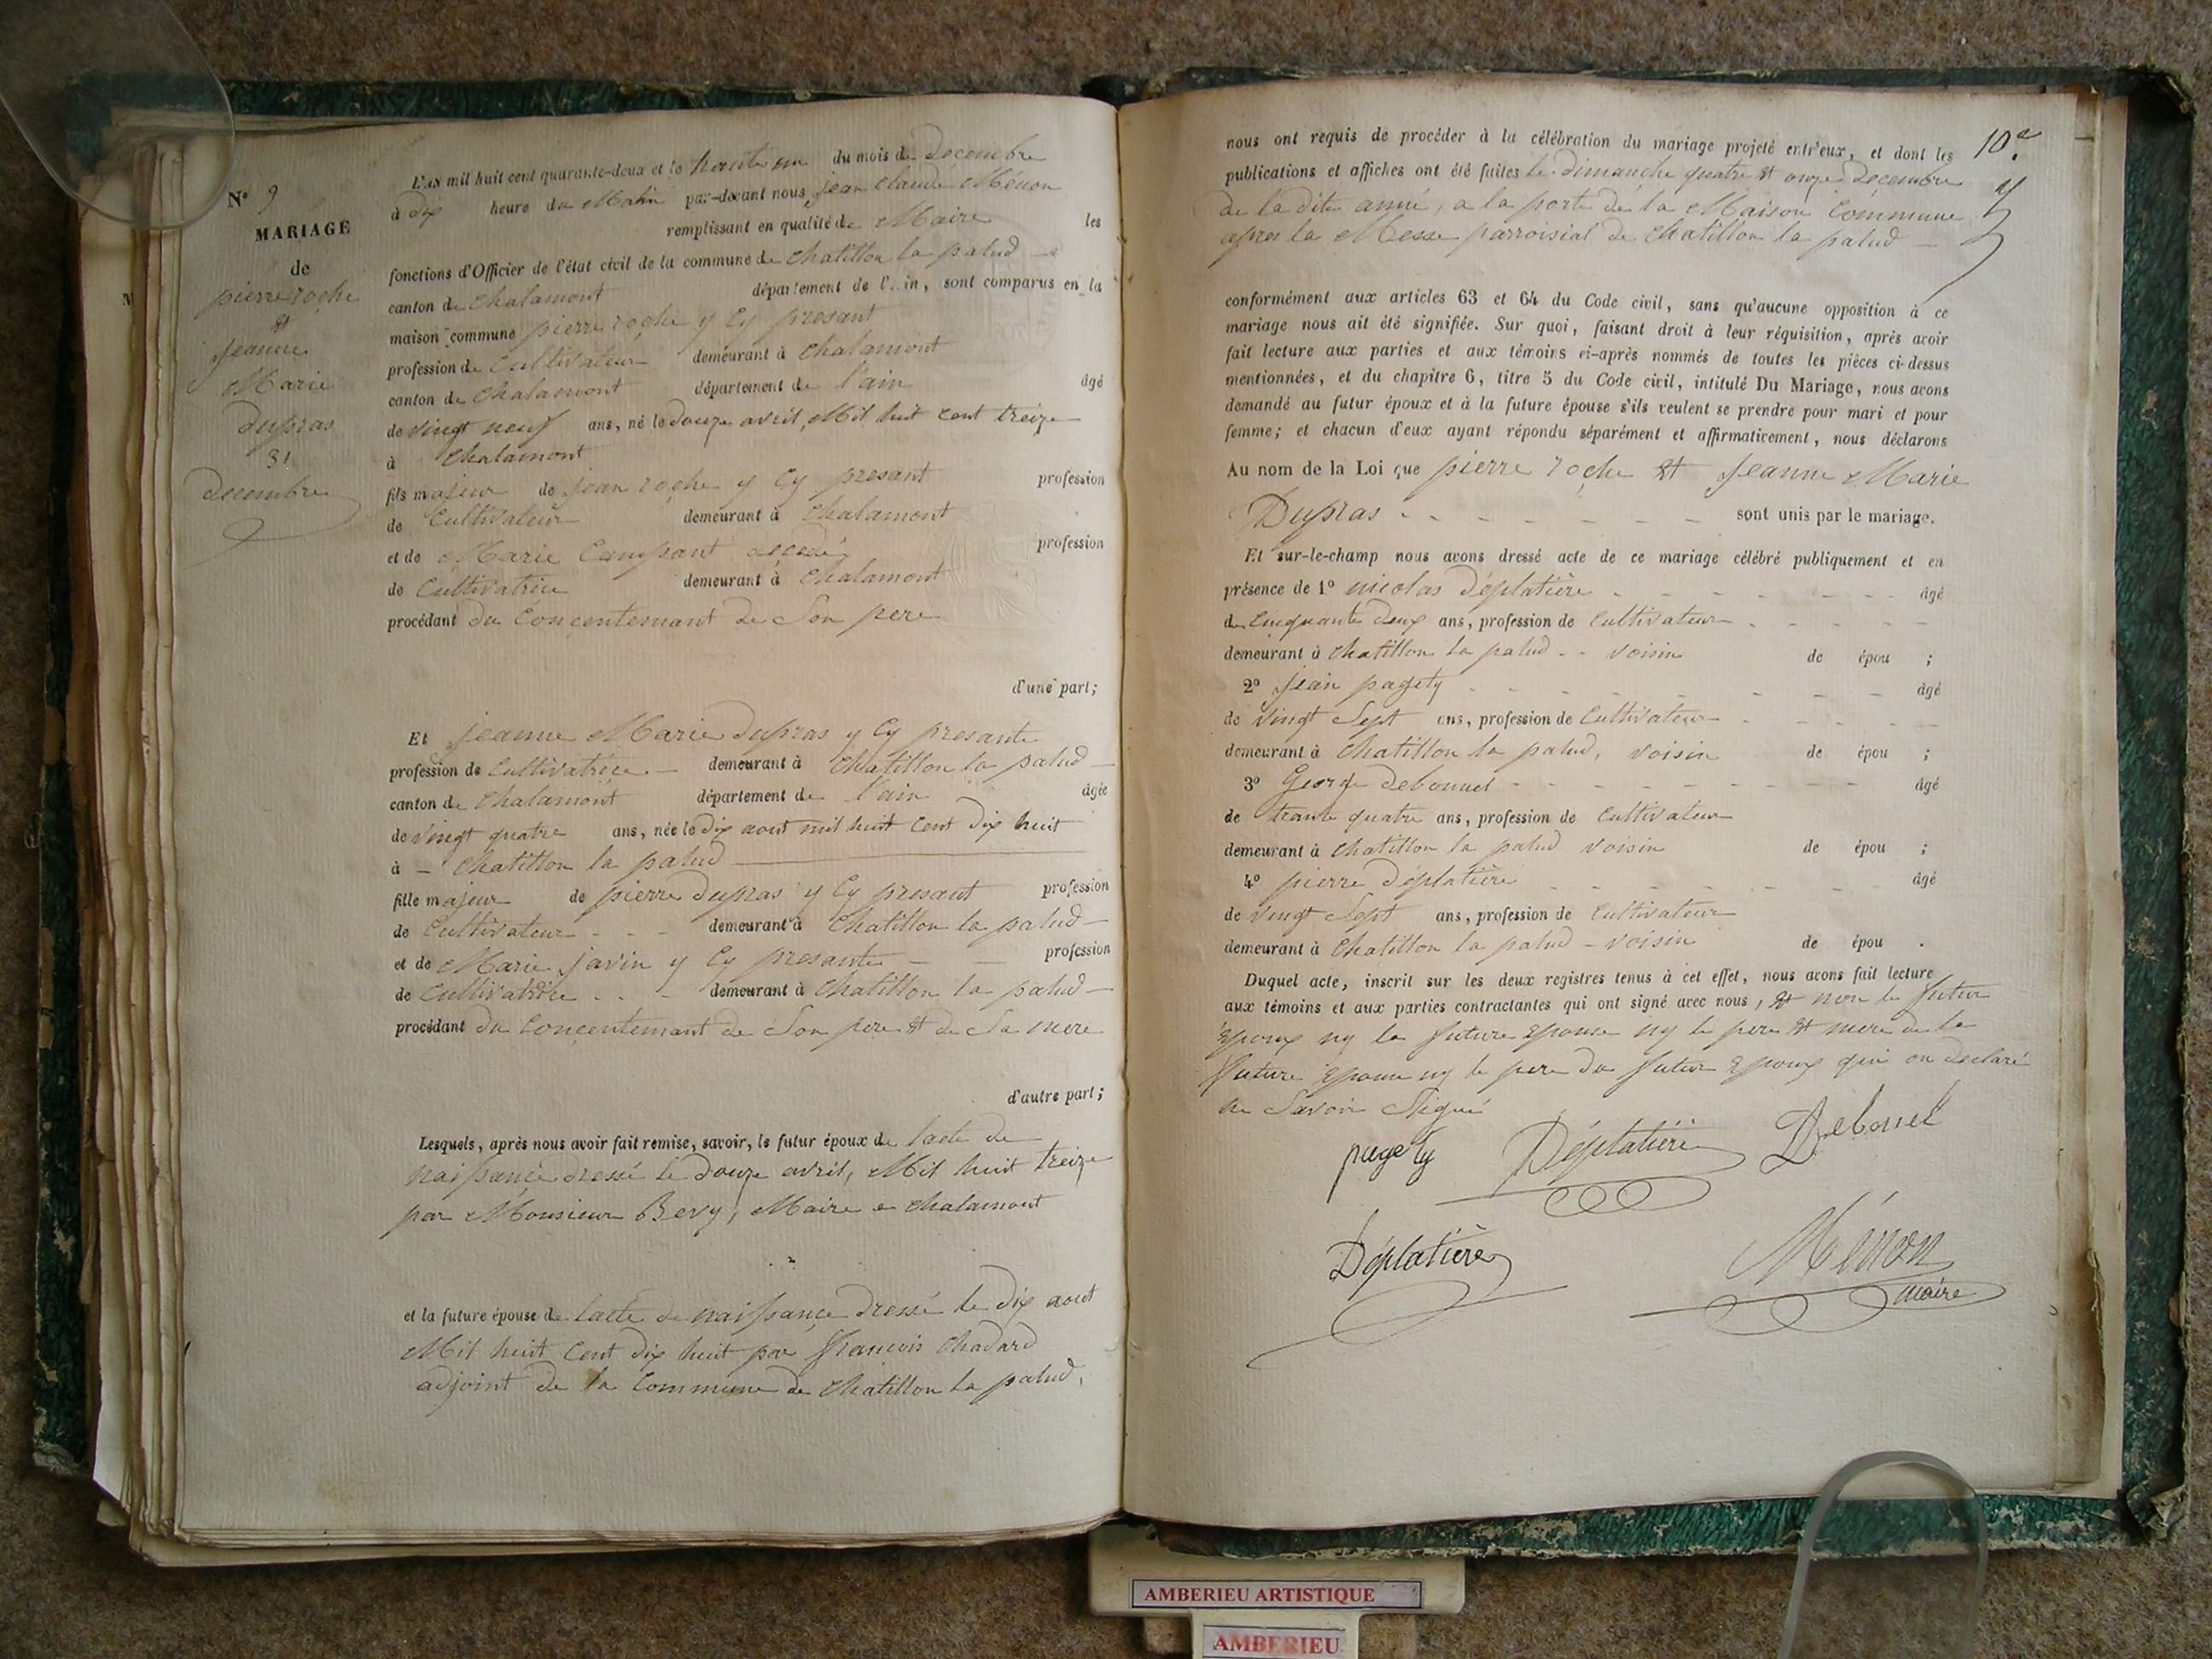 N° 9
MARIAGE
de
pierre roche
et
jeanne
Marie
dupras
31
decembre
L'AN mil huit cent quarante-deux et le trante un du mois de Decembre
à dix heure du Matin par-devant nous jean Claude Ménon
remplissant en qualité de Maire les
fonctions d'Officier de l'état civil de la commune de Chatillon la palud
canton de Chalamont département de l'Ain, sont comparus en la
maison commune pierre roche y Cy presant
profession de Cultivateur demeurant à Chalamont
canton de Chalamont département de l'ain âgé
de vingt neuf ans, né le douze avril, Mil huit cent treize
à Chalamont
fils majeur de jean roche y Cy presant profession
de Cultivateur demeurant à Chalamont
et de Marie Campant profession
de Cultivatrice demeurant à Chalamont
procédant du Concentemant de Son pere
d'une part;
Et jeanne Marie dupras y Cy presante
profession de Cultivatrice demeurant à Chatillon la palud
canton de Chalamont département de l'ain âgée
de vingt quatre ans, née le dix aout mil huit cent dix huit
à Chatillon la palud
fille majeur de pierre dupras y Cy presant profession
de Cultivateur demeurant à Chatillon la palud
et de Marie javin y Cy presante profession
de Cultivatrice demeurant à Chatillon la palud
procédant du Concentemant de Son pere et de Sa mere
d'autre part;
Lesquels, après nous avoir fait remise, savoir, le futur époux de lacte de
naissance dressé le douze avril, Mil huit treize
par Monsieur Bevy, Maire a Chalamont
et la future épouse de lacte de naissance dressé le dix aout
Mil huit Cent dix huit par francois Chadard
adjoint de la Commune de Chatillon la palud,
10e
nous ont requis de procéder à la célébration du mariage projeté entr'eux, et dont les
publications et affiches ont été faites le dimanche quatre et onze decembre
de la dite anné, a la porte de la Maison Commune
apres la Messe parroisial de Chatillon la palud
conformément aux articles 63 et 64 du Code civil, sans qu'aucune opposition à ce
mariage nous ait été signifiée. Sur quoi, faisant droit à leur réquisition, après avoir
fait lecture aux parties et aux témoins ci-après nommés de toutes les pièces ci-dessus
mentionnées, et du chapitre 6, titre 5 du Code civil, intitulé Du Mariage, nous avons
demandé au futur époux et à la future épouse s'ils veulent se prendre pour mari et pour
femme; et chacun d'eux ayant répondu séparément et affirmativement, nous déclarons
Au nom de la Loi que pierre roche et Jeanne Marie
Dupras sont unis par le mariage.
Et sur-le-champ nous avons dressé acte de ce mariage célébré publiquement et en
présence de 1° nicolas Déplatière âgé
de Cinquante deux ans, profession de Cultivateur
demeurant à Chatillon la palud voisin de épou ;
2° jean pagety âgé
de vingt Sept ans, profession de Cultivateur
demeurant à Chatillon la palud, voisin de épou ;
3° George debonnel âgé
de trante quatre ans, profession de Cultivateur
demeurant à Chatillon la palud voisin de épou ;
4° pierre déplatière âgé
de vingt Sept ans, profession de Cultivateur
demeurant à Chatillon la palud - voisin de épou .
Duquel acte, inscrit sur les deux registres tenus à cet effet, nous avons fait lecture
aux témoins et aux parties contractantes qui ont signé avec nous, et non le futur
Epoux ny la future Epouse ny le pere et mere de la
future Epouse ny le pere du futur Epoux qui on declaré
ne Savoir Signé
pagety Déplatière Debonel
Déplatière Ménon
maire
AMBERIEU ARTISTIQUE
AMBERIEU